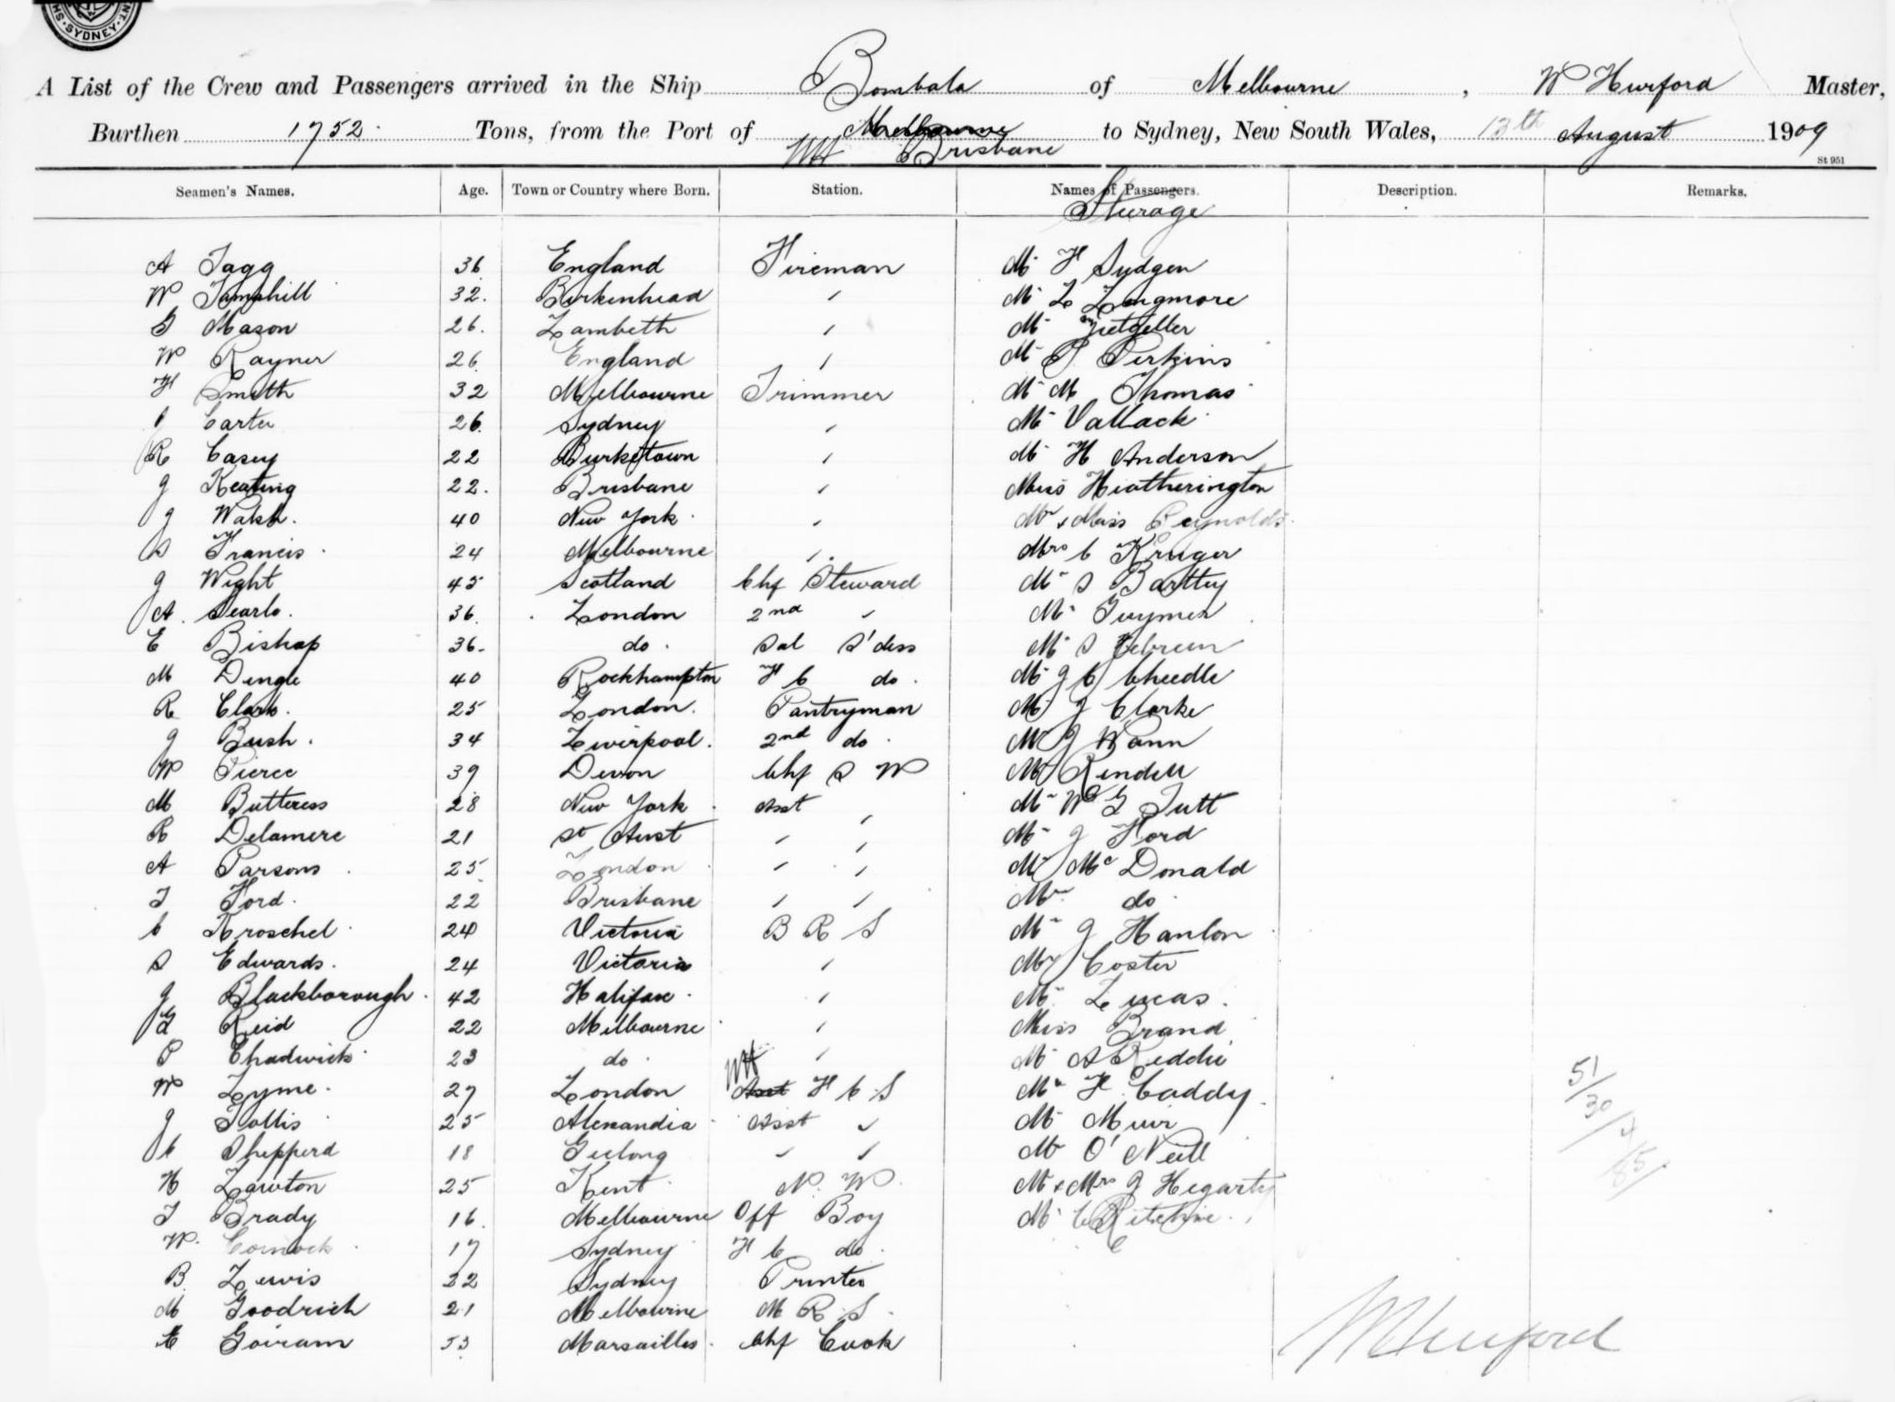 SYDNEY
A List of the Crew and Passengers arrived in the Ship Bombala of Melbourne, W Hurford Master,
Burthen 1752 Tons, from the Port of Melbourne to Sydney, New South Wales, 13th August 1909
WH Brisbane
St 951
Seamen's Names. Age. Town or Country where Born. Station. Names of Passengers. Description. Remarks.
Steerage
A Tagg 36 England Fireman Mr F Sudgen
W Tannahill 32. Birkenhead " Mr L Longmore
G Mason 26. Lambeth " Mr
W Rayner 26 England " Mr T Perkins
F Smith 32 Melbourne Trimmer Mr M Thomas
J Carter 26. Sydney " Mr Vallack
R Casey 22 Burketown " Mr H Anderson
J Keating 22. Brisbane " Miss Heatherington
J Walsh. 40 New York " Mr & Miss Reynolds
S Francis 24 Melbourne " Mrs C Kruger
J Wight 45 Scotland Chf Steward Mr S Bartley
A. Searle. 36. London 2nd " Mr Guymer
E Bishop 36. do. Sal S'dess Mr S
M Dingle 40 Rockhampton F C do. Mr J C Cheedle
R Clark. 25 London. Pantryman Mr J Clarke
J Bush. 34 Liverpool. 2nd do. Mr J Wann
W Pierce 39 Devon Chf S W Mr Rendell
M Butteress 28 New York Asst " Mr W G Tutt
R Delamere 21 St Aust " " Mr J Ford
A Parsons 25 London " " Mr McDonald
T Ford. 22 Brisbane " " Mr do
C Kroschel 24 Victoria B R S Mr J Hanlon
S Edwards. 24 Victoria " Mr Coster
J Blackborough. 42 Halifax. " Mr Lucas.
G Reid 22 Melbourne " Miss Brand
P Chadwick 23 do. " Mr A Reddie
W Lyme. 27 London WH Asst F C S Mr F Caddy 51
J Tollis 25 Alexandia Asst " Mr Muir 30
C Shepperd 18 Geelong " " Mr O'Neill 4
H Lawton 25 Kent N. W. Mr & Mrs J Hegarty 85
T Brady 16. Melbourne Off Boy Mr C Ritchie.
W. Cornock 17 Sydney F C do.
B. Lewis 22 Sydney Printer
M Goodrich 21 Melbourne M R S.
E Goiram 53 Marsailles. Chf Cook
WHurford